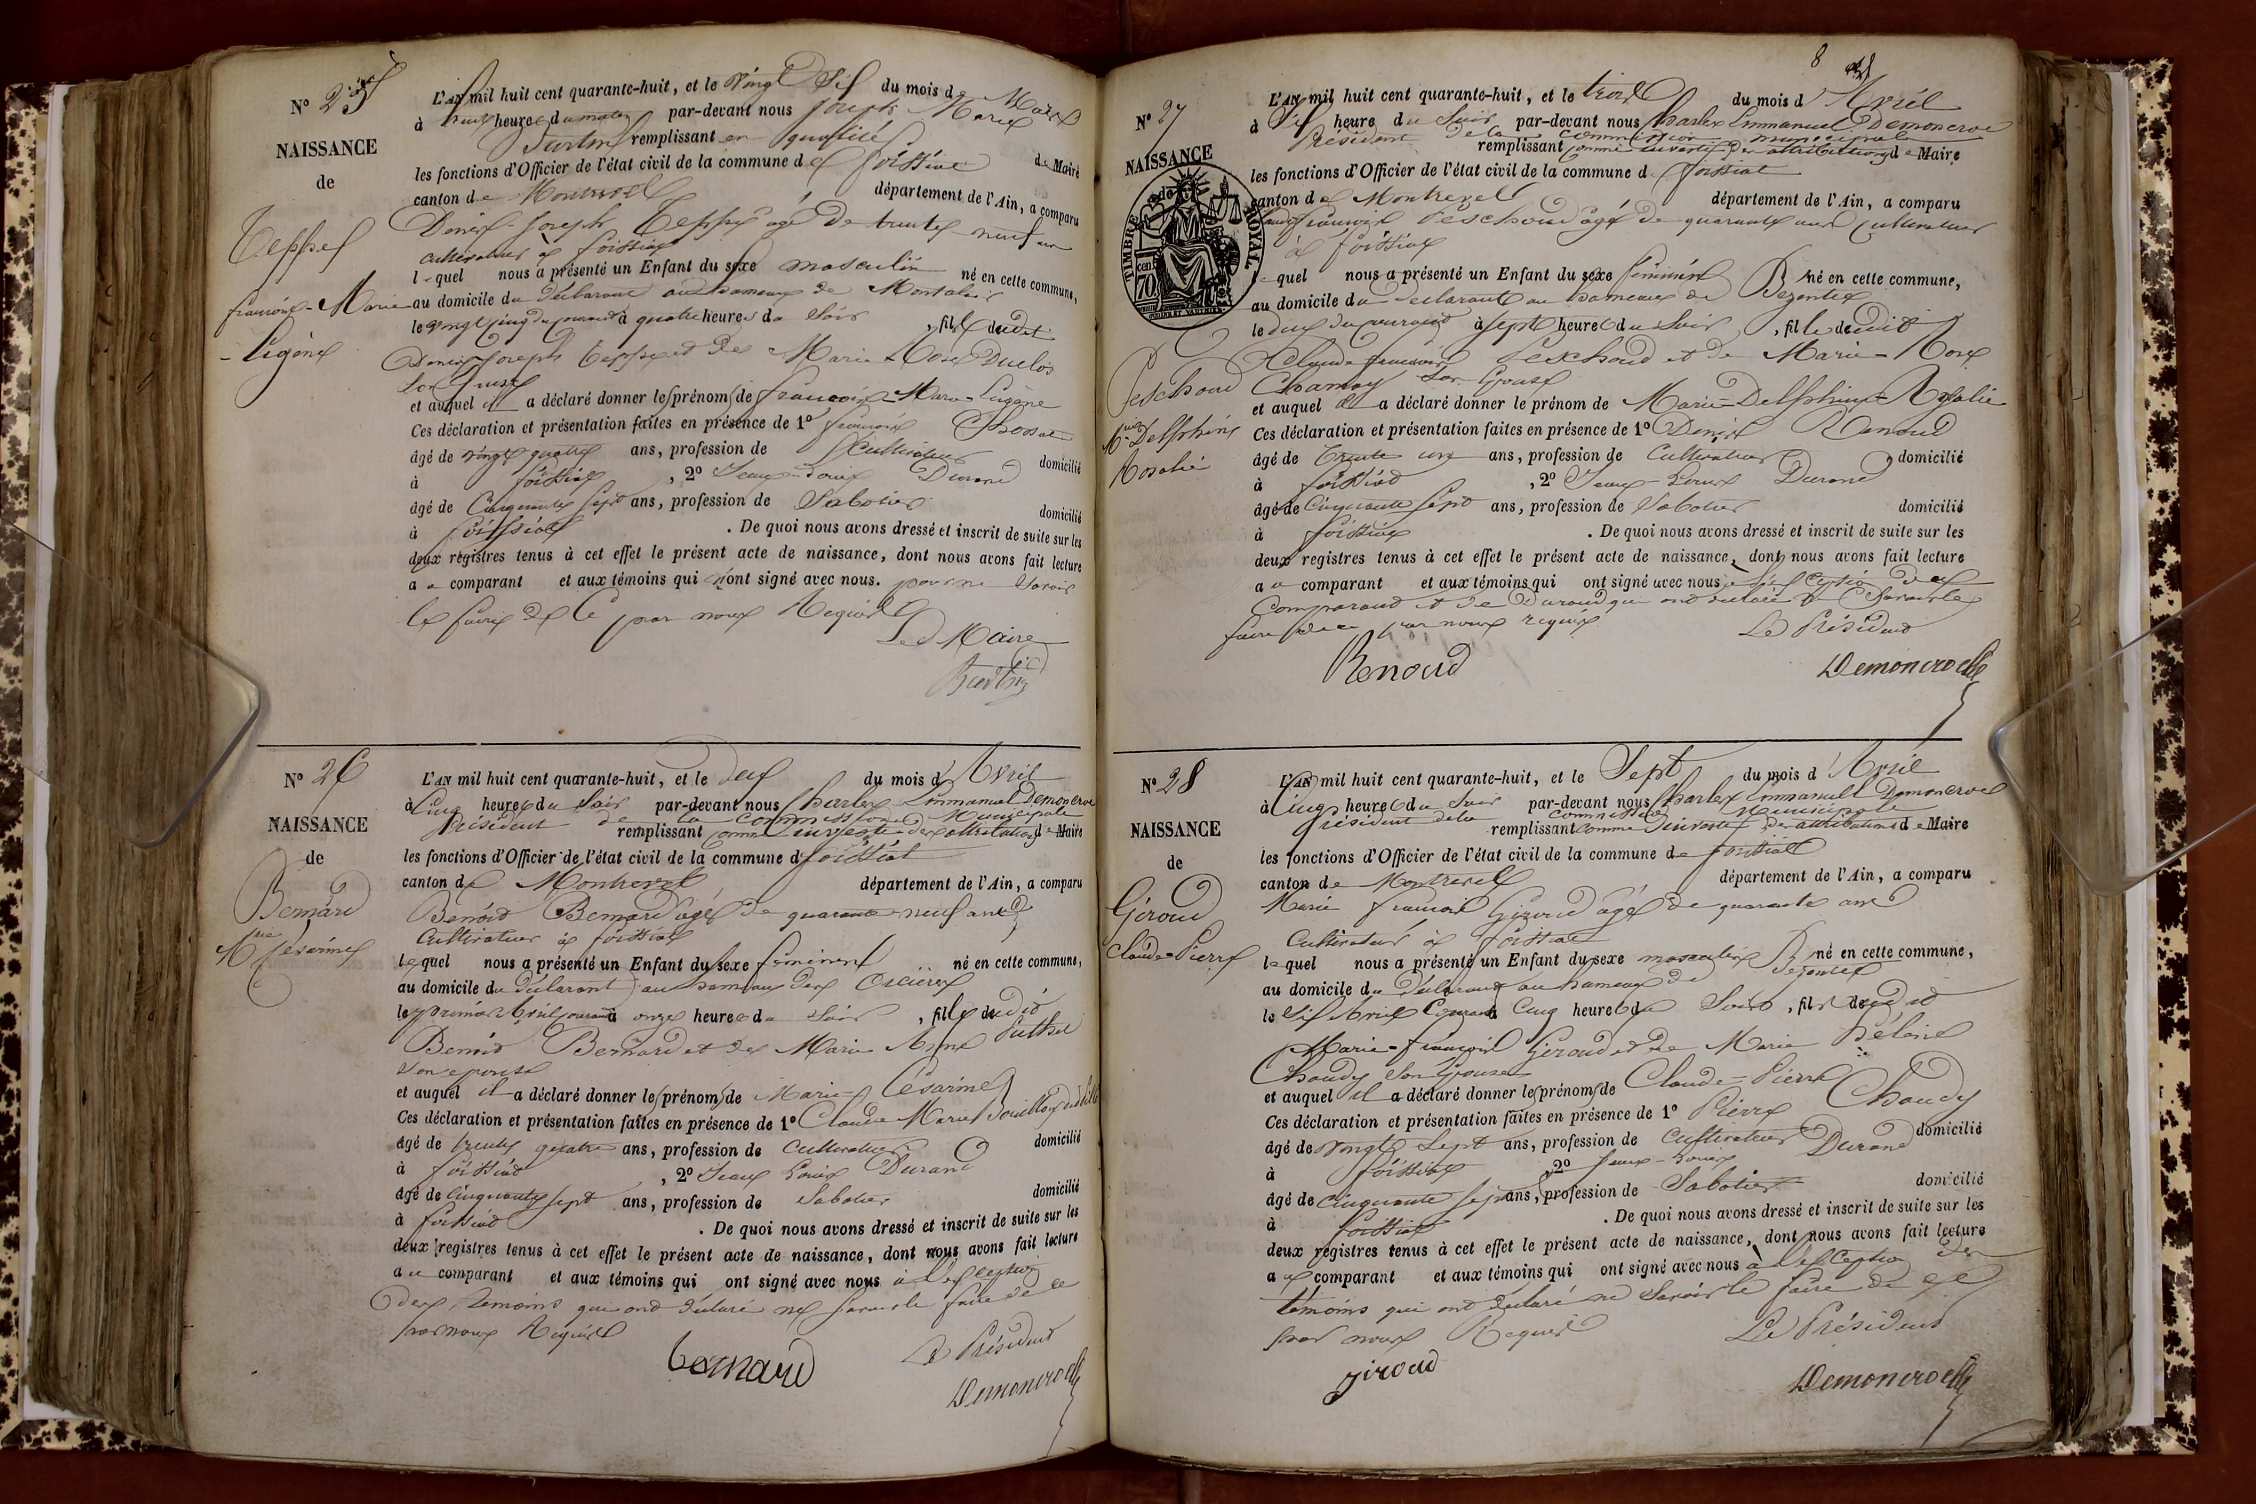 N° 25
NAISSANCE
de
Teppe
françois-Marie
-Eugène
L'AN mil huit cent quarante-huit, et le vingt Six du mois de Mars
à huit heures du matin par-devant nous Joseph Marie
remplissant en qualité de Maire
les fonctions d'Officier de l'état civil de la commune de foissiat
canton de Montrevel département de l'Ain, a comparu
Denis-Joseph Teppe agé de trente neuf ans
cultivateur à foissiat
lequel nous a présenté un Enfant du sexe masculin né en cette commune,
au domicile du déclarant au hameau de
le vingt cinq du courant à quatre heures du Soir, fils dudit
Denis Joseph Teppe et de Marie Rose Duclos
Son Epouse
et auquel il a déclaré donner les prénoms de françois-Marie-Eugène
Ces déclaration et présentation faites en présence de 1° françois
âgé de vingt quatre ans, profession de Cultivateur domicilié
à foissiat, 2° Jean-Louis Durand
âgé de Cinquante Sept ans, profession de Sabotier domicilié
à foissiat. De quoi nous avons dressé et inscrit de suite sur les
deux registres tenus à cet effet le présent acte de naissance, dont nous avons fait lecture
au comparant et aux témoins qui n'ont signé avec nous. pour ne Savoir
le faire de ce par nous Requis
Le Maire
N° 26
NAISSANCE
de
Bernard
Mrie Césarine
L'AN mil huit cent quarante-huit, et le deux du mois d'Avril
à Cinq heures du Soir par-devant nous Charles Emmanuel Demoncroe
Président de la commission Municipale
remplissant comme investi des attributions de Maire
les fonctions d'Officier de l'état civil de la commune de foissiat
canton de Montrevel département de l'Ain, a comparu
Benoid Bernard agé de quarante neuf ans
Cultivateur à foissiat
lequel nous a présenté un Enfant du sexe féminin né en cette commune,
au domicile du déclarant au hameau des
le premier Avril courant à onze heures du Soir, fille dudit
Benoid Bernard et de Marie Anne Puthet
son epouse
et auquel il a déclaré donner les prénoms de Marie-Césarine
Ces déclaration et présentation faites en présence de 1° Claude Marie
âgé de trente quatre ans, profession de cultivateur domicilié
à foissiat, 2° Jean Louis Durand
âgé de Cinquante sept ans, profession de Sabotier domicilié
à foissiat. De quoi nous avons dressé et inscrit de suite sur les
deux registres tenus à cet effet le présent acte de naissance, dont nous avons fait lecture
au comparant et aux témoins qui ont signé avec nous à l'exception
des témoins qui ont déclaré ne savoir le faire de ce
par nous Requis
Le Président
Bernard
Demoncroe
8
N° 27
NAISSANCE
TIMBRE ROYAL
70
Peschoud
Mrie Delphine
Rosalie
L'AN mil huit cent quarante-huit, et le trois du mois d'Avril
à Six heure du Soir par-devant nous Charles Emmanuel Demoncroe
Président de la commission municipale
remplissant comme investi des attributions de Maire
les fonctions d'Officier de l'état civil de la commune de foissiat
canton de Montrevel département de l'Ain, a comparu
Claude françois Peschoud agé de quarante ans Cultivateur
à foissiat
lequel nous a présenté un Enfant du sexe féminin né en cette commune,
au domicile du déclarant au hameau de Bezentet
le deux du courant à sept heures du Soir, fille dudit
Claude françois Peschoud et de Marie-Rose
Chamay Son Epouse
et auquel il a déclaré donner le prénom de Marie-Delphine-Rosalie
Ces déclaration et présentation faites en présence de 1° Denis Renoud
âgé de Trente un ans, profession de Cultivateur domicilié
à foissiat, 2° Jean-Louis Durand
âgé de Cinquante sept ans, profession de Sabotier domicilié
à foissiat. De quoi nous avons dressé et inscrit de suite sur les
deux registres tenus à cet effet le présent acte de naissance, dont nous avons fait lecture
au comparant et aux témoins qui ont signé avec nous à l'exception du
Comparant et de Durand qui ont déclaré ne Savoir le
faire de ce par nous requis
Le Président
Renoud
Demoncroe
N° 28
NAISSANCE
de
Géroud
Claude-Pierre
L'AN mil huit cent quarante-huit, et le Sept du mois d'Avril
à Cinq heures du Soir par-devant nous Charles Emmanuel Demoncroe
Président de la commission Municipale
remplissant comme investi des attributions de Maire
les fonctions d'Officier de l'état civil de la commune de foissiat
canton de Montrevel département de l'Ain, a comparu
Marie françois Giroud agé de quarante ans
Cultivateur à foissiat
lequel nous a présenté un Enfant du sexe masculin né en cette commune,
au domicile du déclarant au hameau de Bezentet
le Six Avril Courant à Cinq heures du Soir, fils dudit
Marie-françois Géroud et de Marie Hélène
Chaudy Son Epouse
et auquel il a déclaré donner les prénoms de Claude-Pierre
Ces déclaration et présentation faites en présence de 1° Pierre Chaudy
âgé de vingt Sept ans, profession de Cultivateur domicilié
à foissiat, 2° Jean-Louis Durand
âgé de Cinquante Sept ans, profession de Sabotier domicilié
à foissiat. De quoi nous avons dressé et inscrit de suite sur les
deux registres tenus à cet effet le présent acte de naissance, dont nous avons fait lecture
au comparant et aux témoins qui ont signé avec nous à l'exception des
témoins qui ont déclaré ne Savoir le faire de ce
par nous Requis
Le Président
giroud
Demoncroe